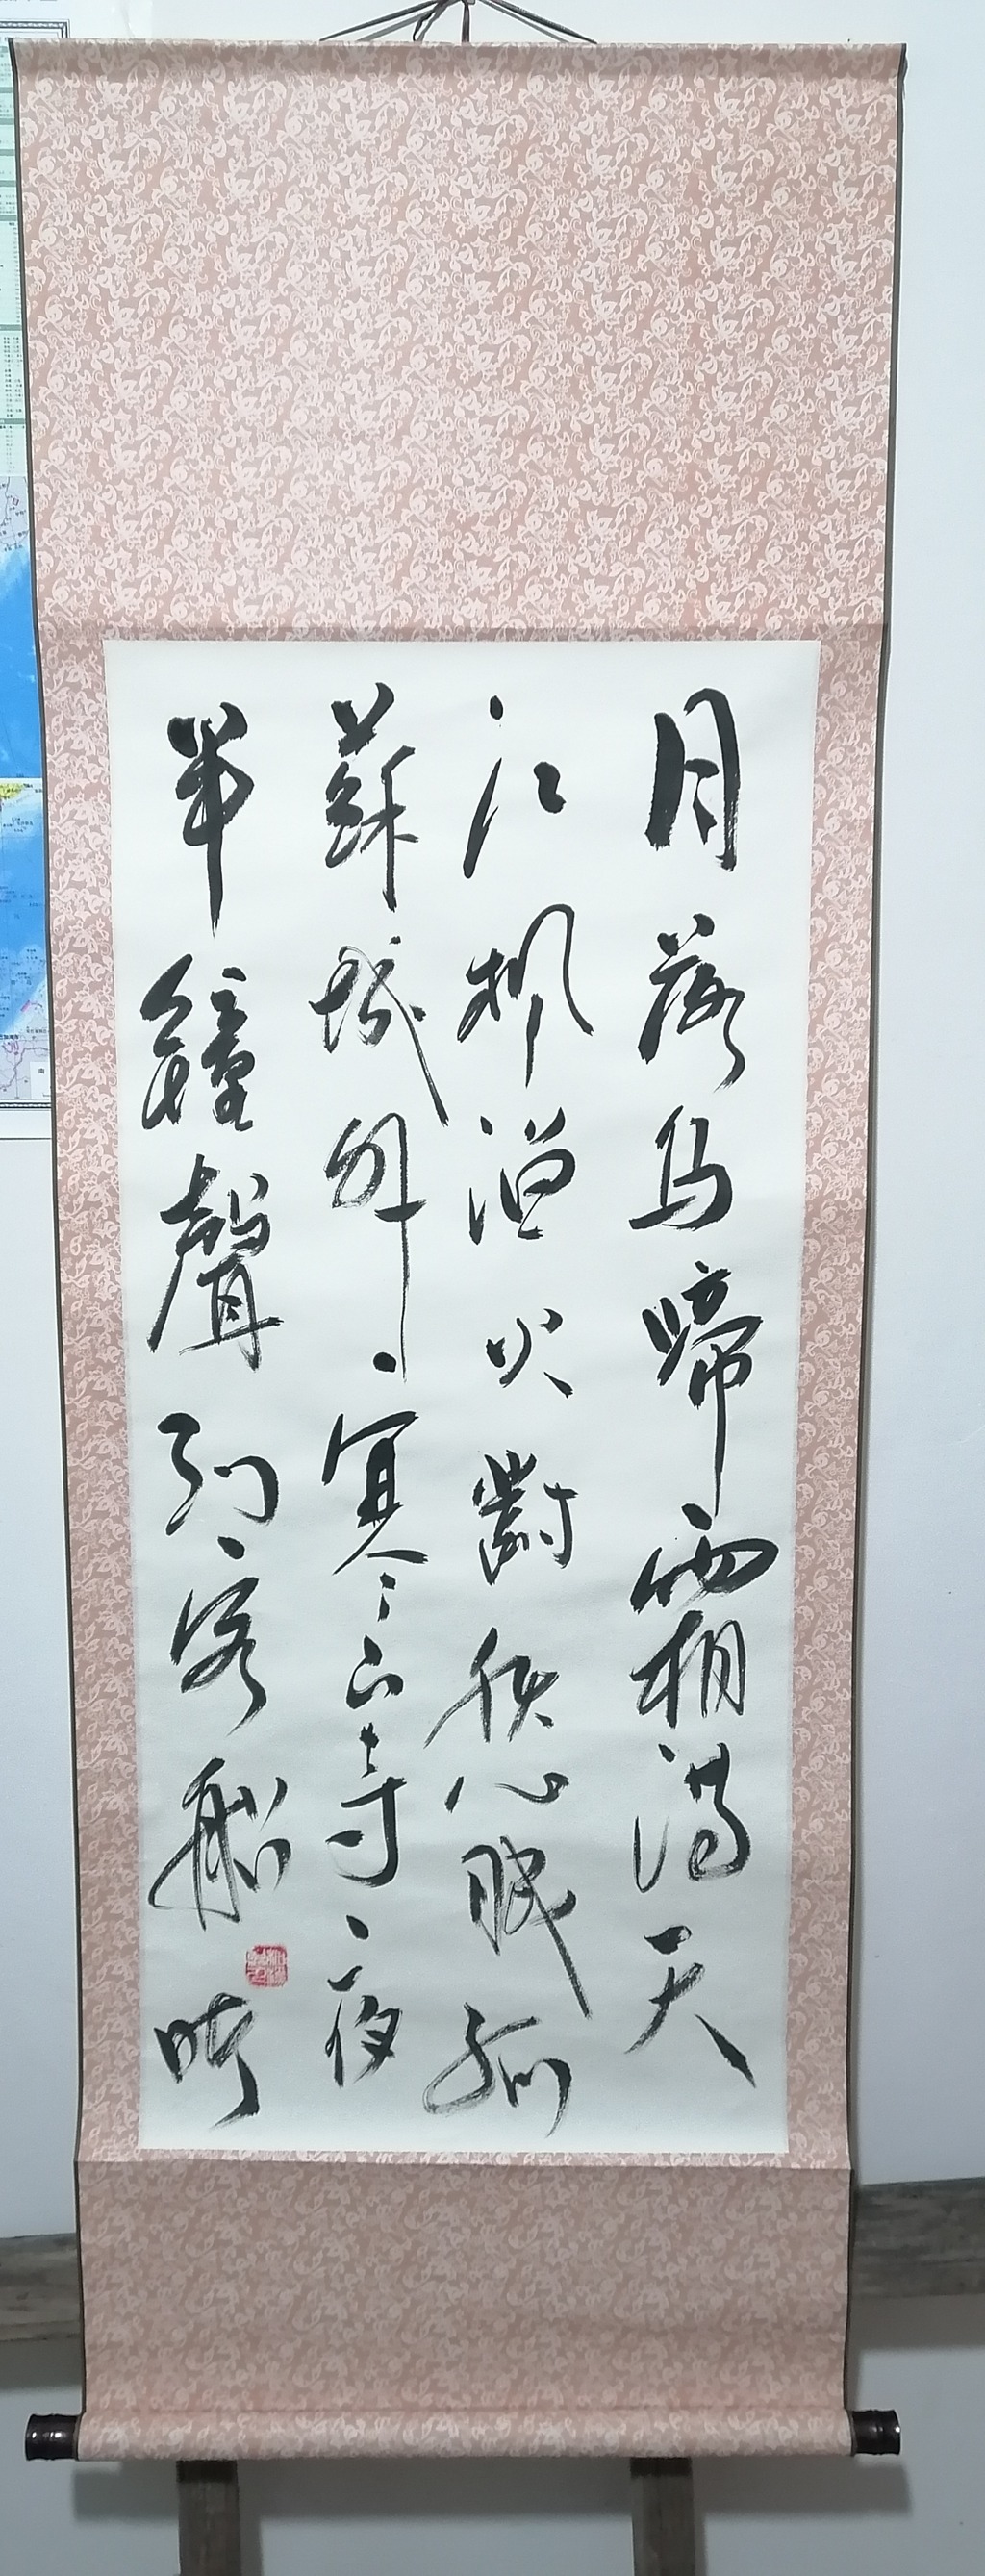 月落烏啼霜滿天
江楓漁火對愁眠姑
蘇城外寒山寺夜
半鐘聲到客船